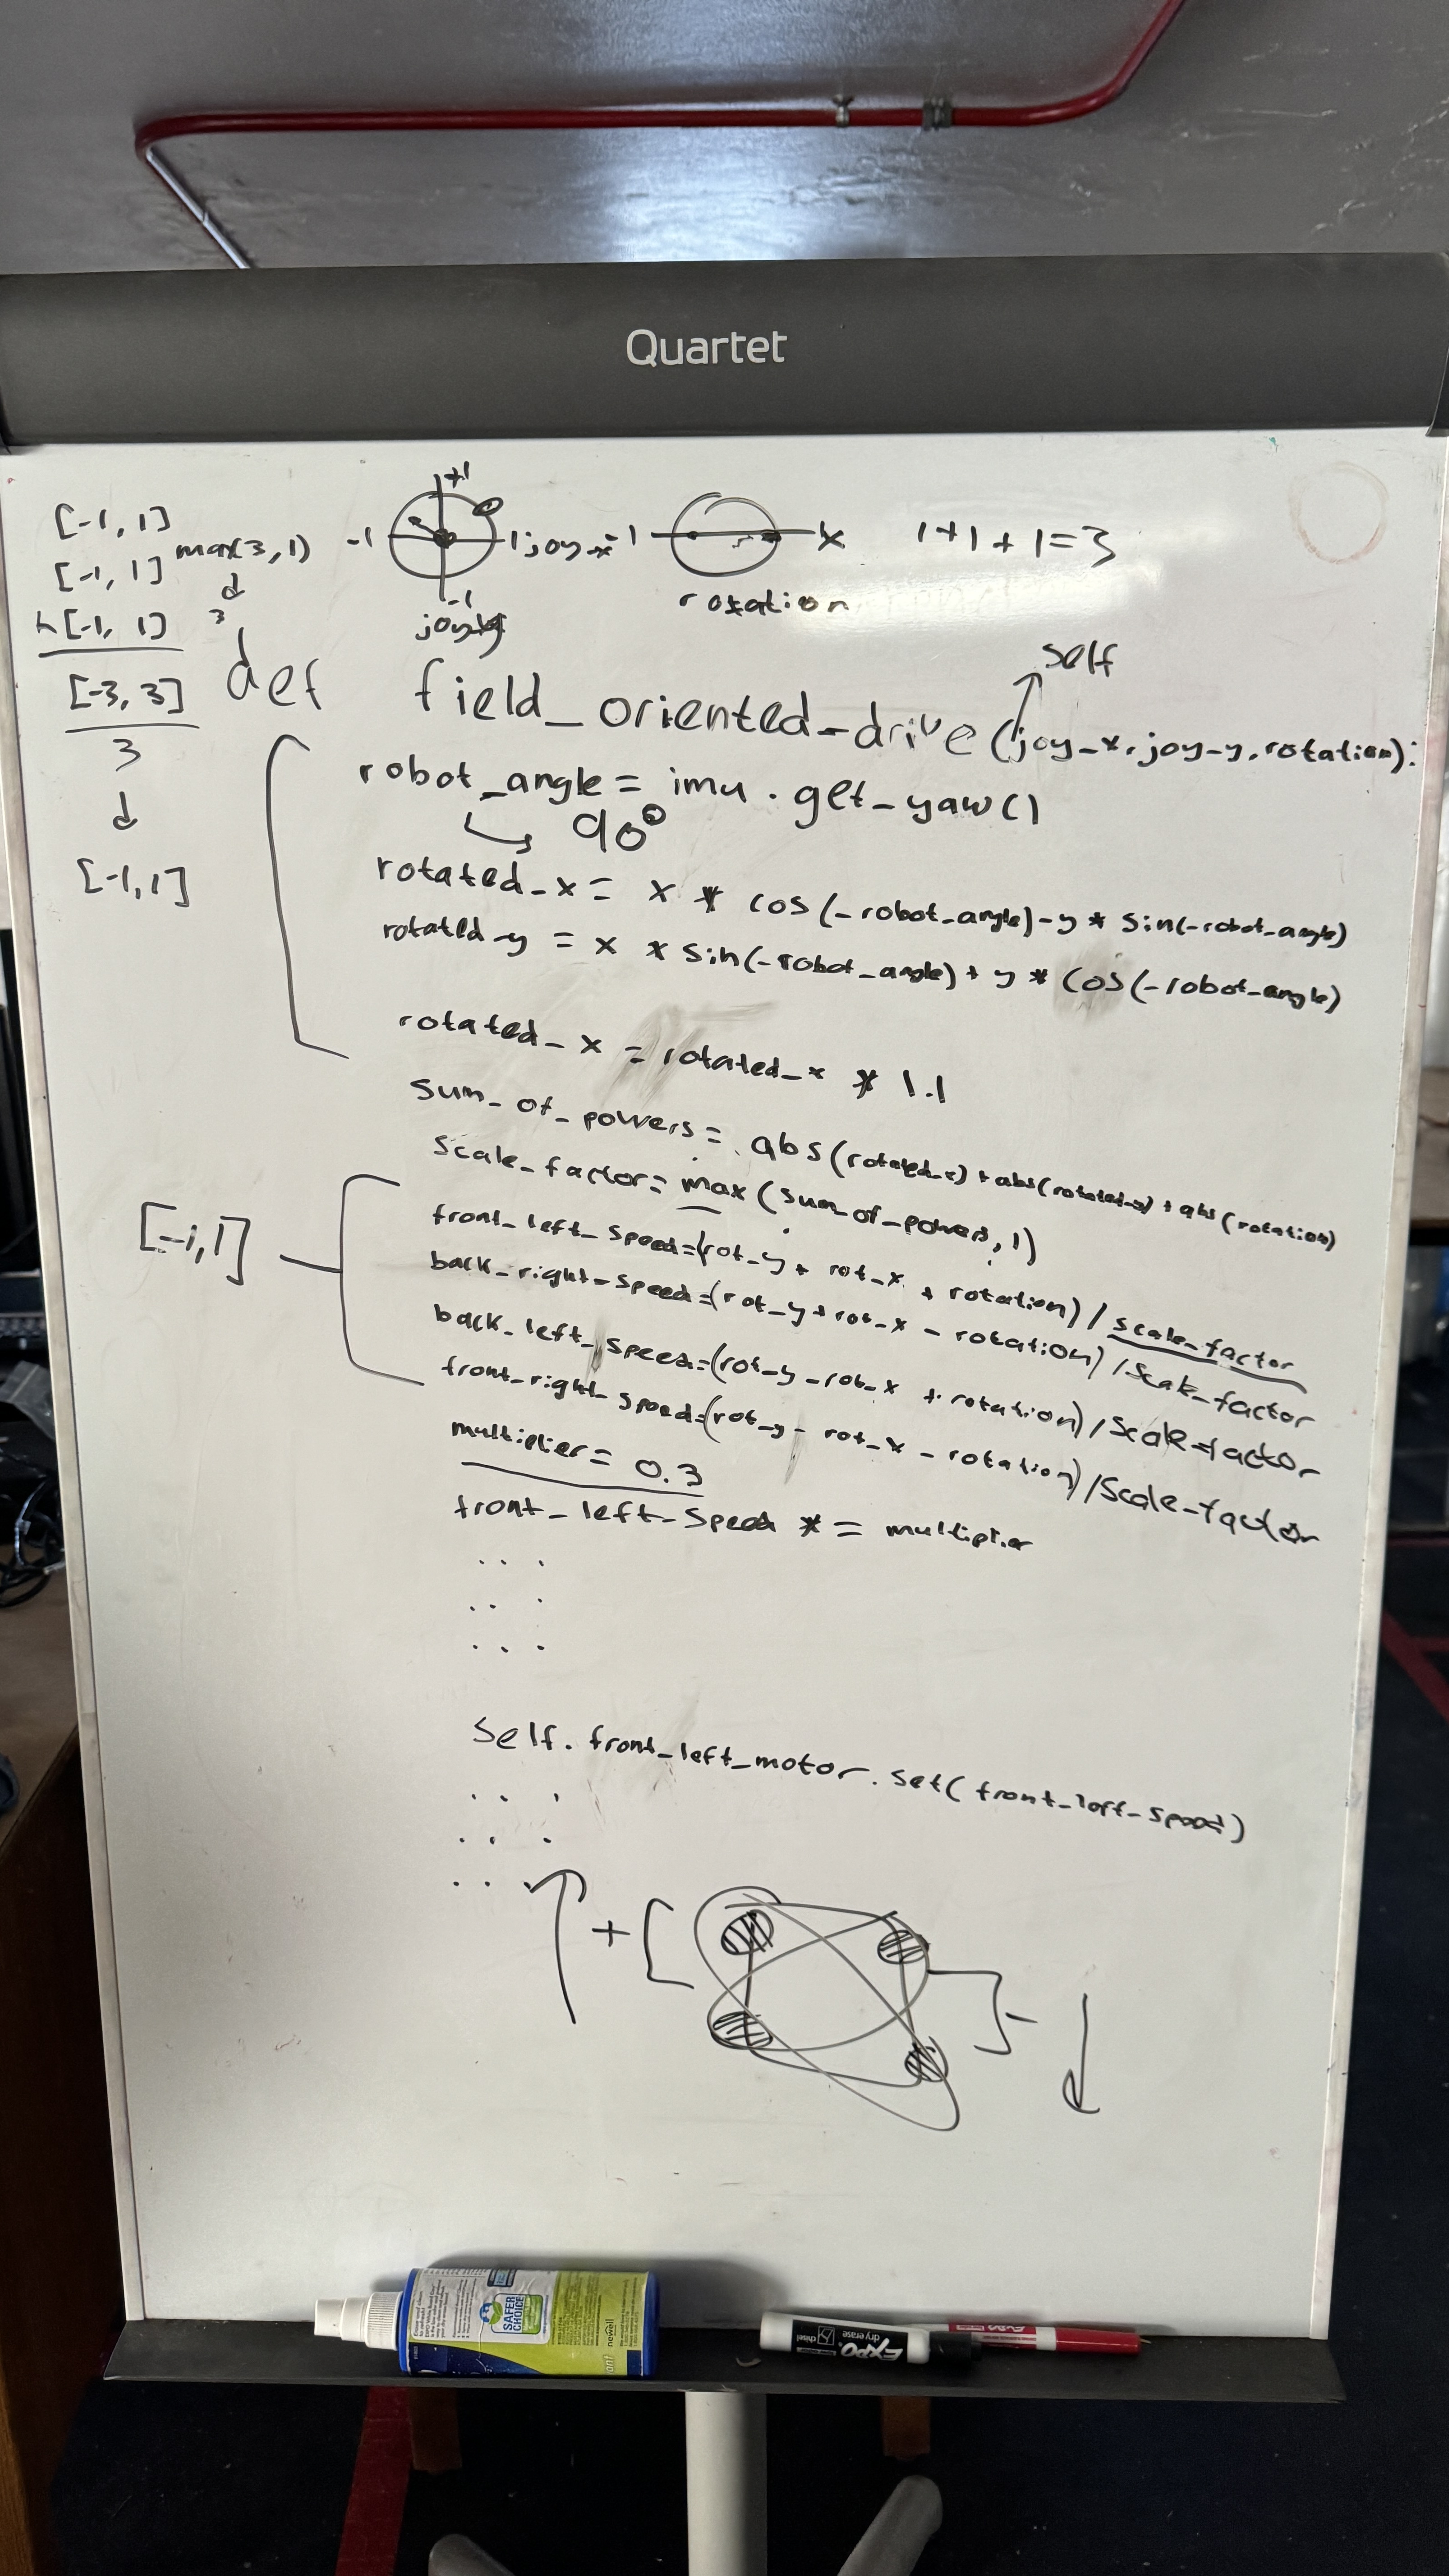 Quartet
[-1, 1]
[-1, 1]
[-1, 1]
[-3, 3]
3
[-1, 1]
max(3, 1)
3
+1
-1
1 joy-x
-1
-1
x
rotation
1+1+1=3
self
def field_oriented_drive(joy-x, joy-y, rotation):
robot_angle = imu.get_yaw()
90°
rotated_x = x * cos(-robot_angle) - y * sin(-robot_angle)
rotated_y = x * sin(-robot_angle) + y * cos(-robot_angle)
rotated_x = rotated_x * 1.1
sum_of_powers = abs(rotated_x) + abs(rotated_y) + abs(rotation)
scale_factor = max(sum_of_powers, 1)
[-1, 1]
front_left_speed=(rot_y + rot_x + rotation) / scale_factor
back_right_speed=(rot_y + rot_x - rotation) / scale_factor
back_left_speed=(rot_y - rot_x + rotation) / scale_factor
front_right_speed=(rot_y - rot_x - rotation) / scale_factor
multiplier = 0.3
front_left_speed *= multiplier
...
...
...
self.front_left_motor.set(front_left_speed)
...
...
...
+
-
SAFER CHOICE
newell
EXPO
dry erase
chisel